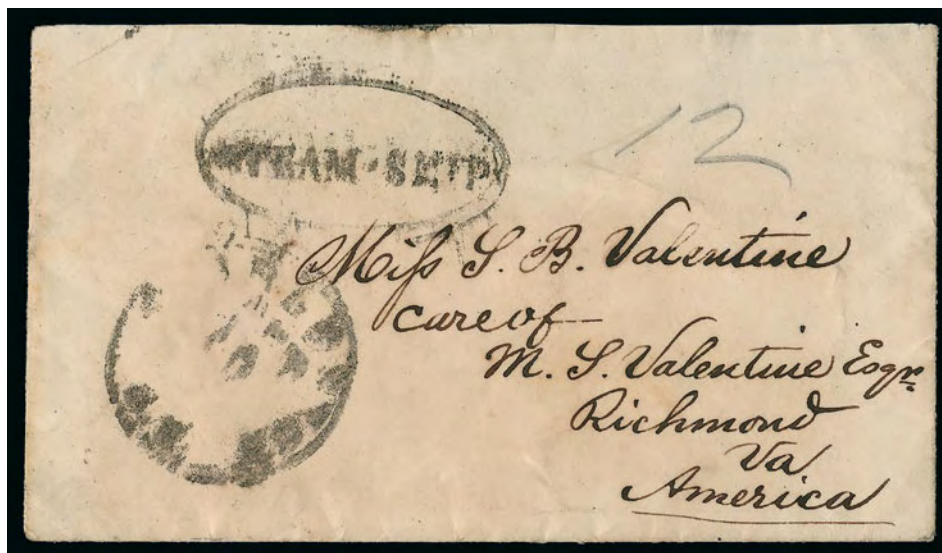 STEAM-SHIP
12
Miss S. B. Valentine
care of
M. S. Valentine Esqr.
Richmond
Va
America